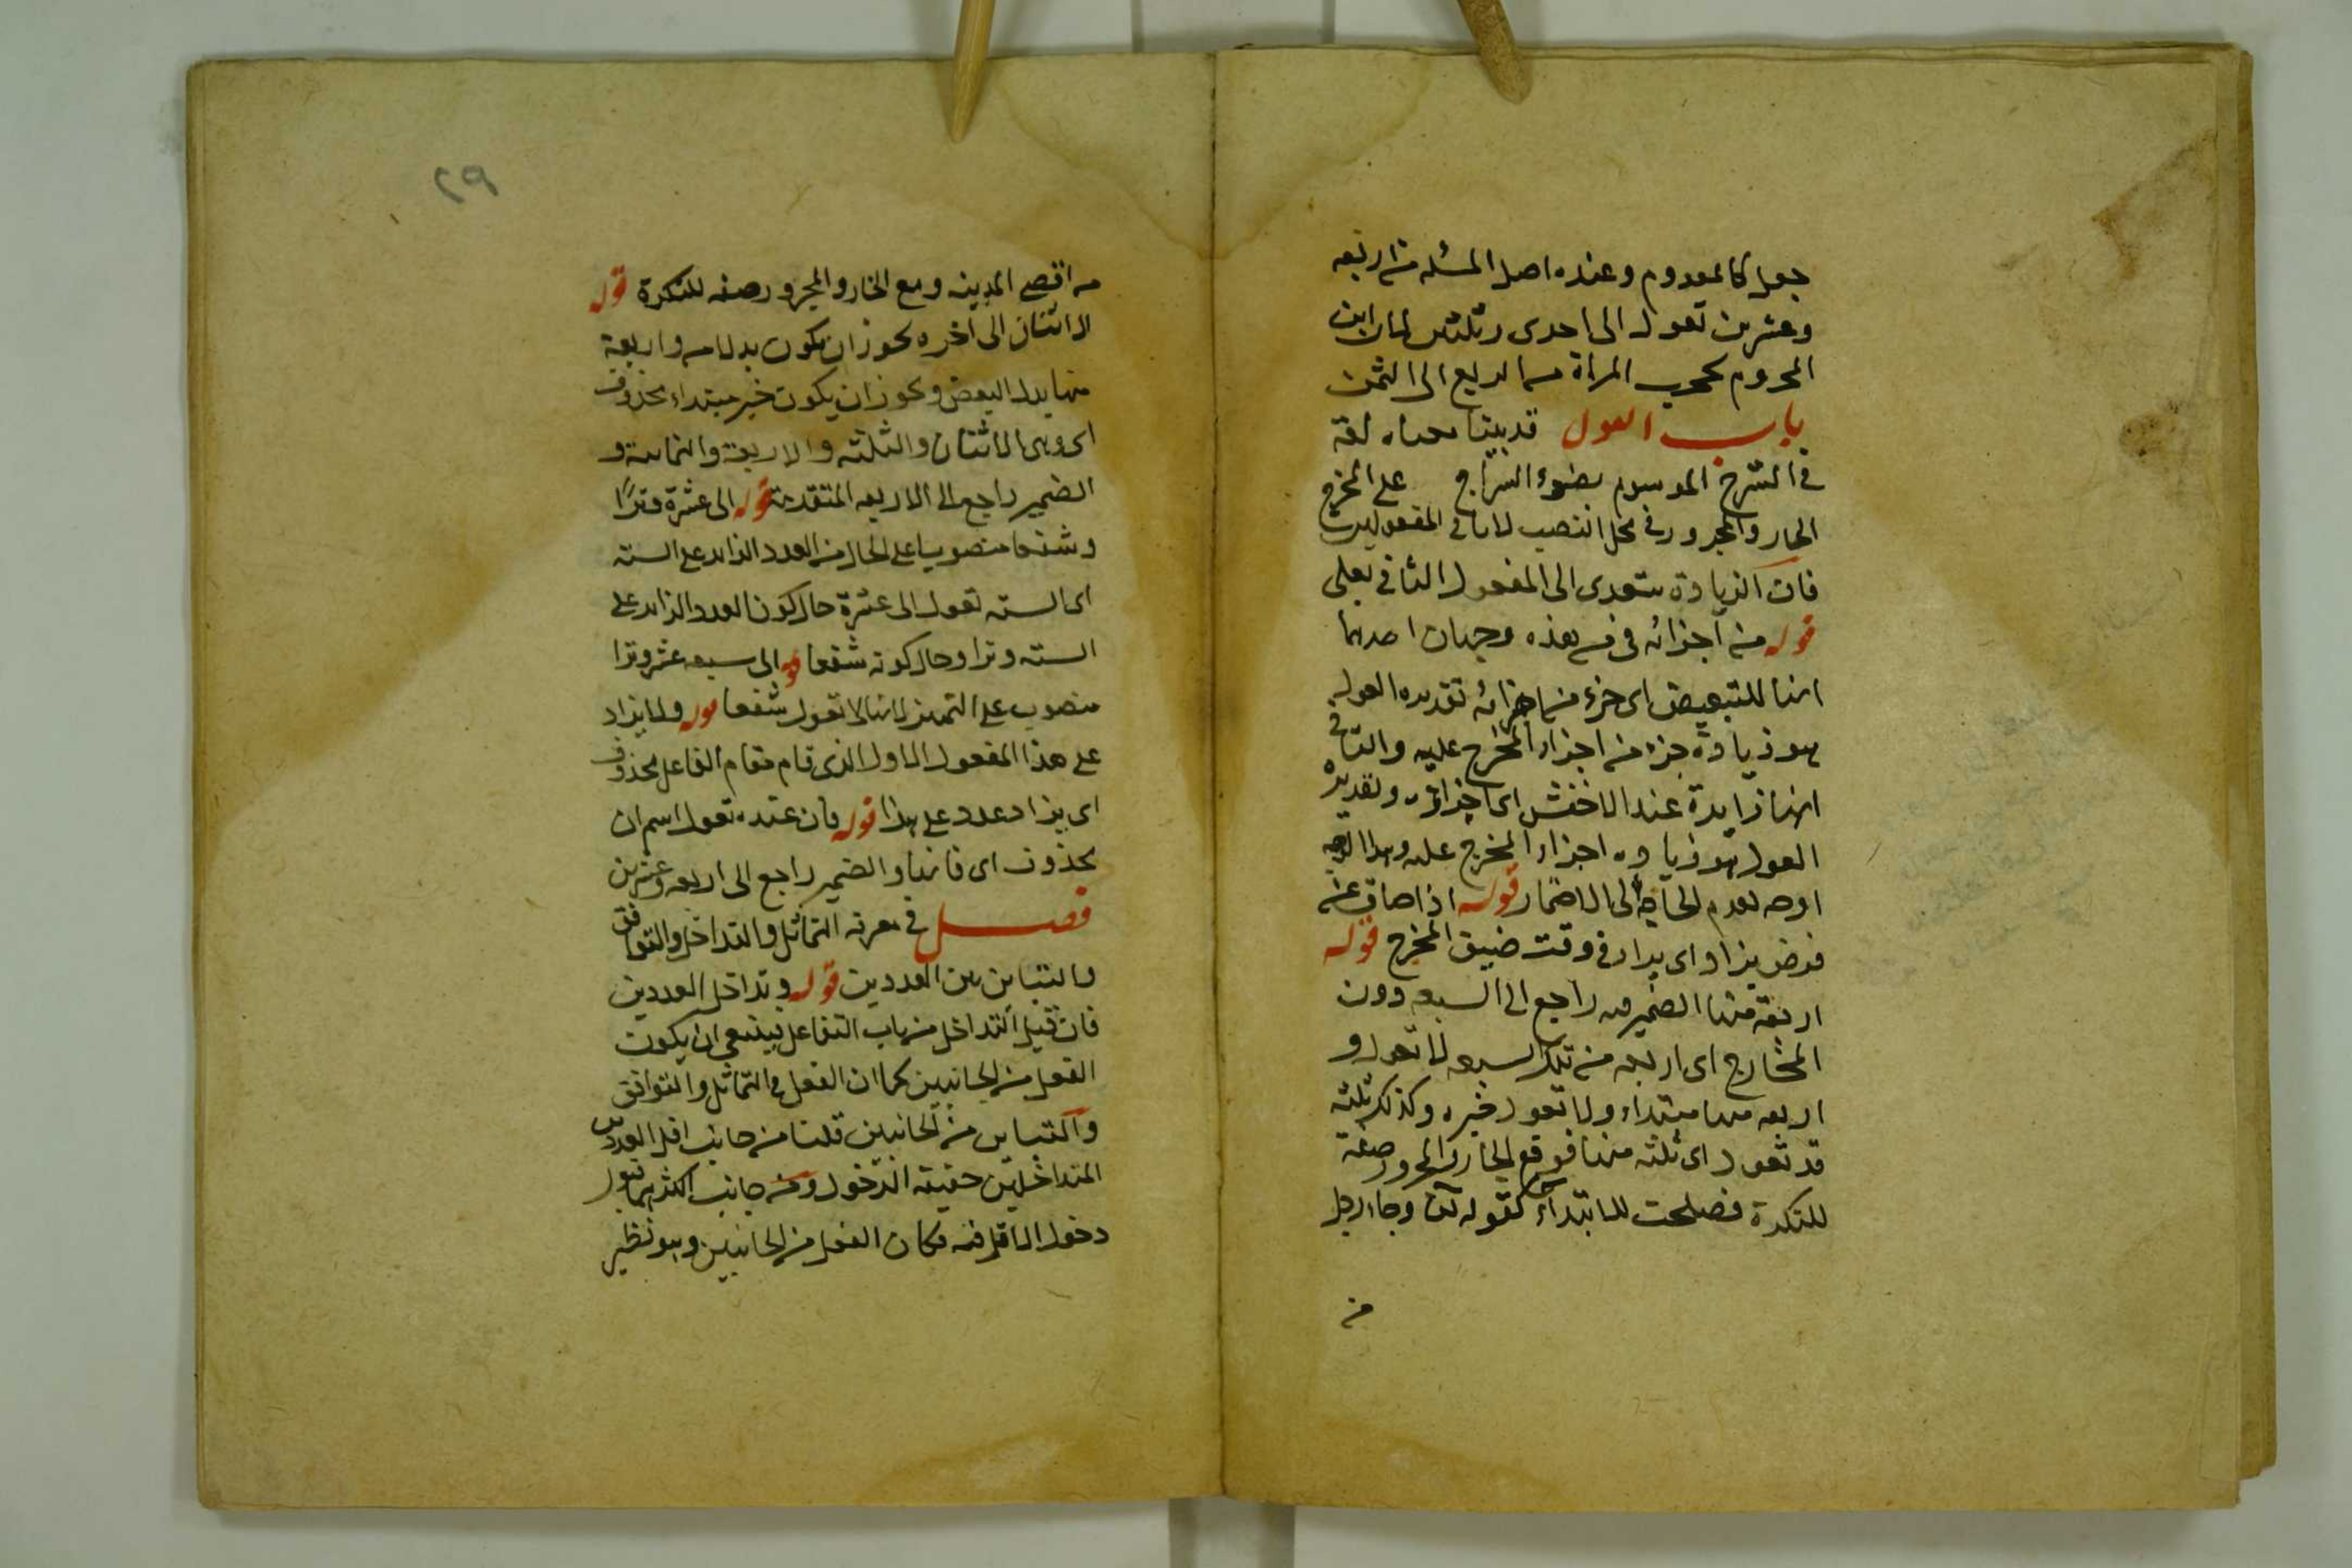 جعل كالمعدوم وعنده اصل المسئله من اربعه
وعشرين تعول الى احدى وثلثين لان ابن
المحروم يحجب المراة من الربع الى الثمن
باب العول قد بينا معناه لغة
فى الشرح الموسوم بضوء السراج على المخرج
الجار والمجرور فى محل النصب لانه ثانى المفعولين
فان الزيادة تتعدى الى المفعول الثانى بعلى
قوله من اجزائه فى من هذه وجهان احدهما
انها للتبعيض اى جزء من اجزائه تقديره العول
هو زيادة جزء من اجزاء المخرج عليه والثانى
انها زايدة عند الاخفش اى اجزاؤه وتقديره
العول هو زيادة اجزاء المخرج عليه وهذا الوجه
اوجه لعدم الحاجة الى الاضمار قوله اذا ضاق عن
فرض يزاد اى يزاد فى وقت ضيق المخرج قوله
اربعة منها الضمير راجع الى السبعه دون
المخارج اى اربعه من تلك السبعه لا تعول و
اربعه منها مبتداء ولا تعول خبره وكذلك ثلثه
قد تعول اى ثلثه منها فوقع الجار والمجرور صفة
للنكرة فصلحت للابتداء كقوله تعالى وجاء رجل
من
٢٩
من اقصى المدينه وقع الجار والمجرور صفه للنكرة قوله
الاثنان الى اخره يجوز ان يكون بدلا من واربعة
منها بدل البعض ويجوز ان يكون خبر مبتداء محذوف
اى وهى الاثنان والثلثه والاربعة والثمانية و
الضمير راجع الى الاربعه المتقدمة قوله الى عشرة وترًا
وشفعا منصوب على الحال من العدد الزايد على الستة
اى الستة تعول الى عشرة حال كون العدد الزايد على
الستة وترا وحال كونه شفعا قوله الى سبعه عشر وترا
منصوب على التمييز لانها لا تعول شفعا قوله ولا يزاد
على هذا المفعول الاول الذى قام مقام الفاعل محذوف
اى يزاد عدد على هذا قوله فان عنده تعول اسم ان
محذوف اى فانها والضمير راجع الى اربعه وعشرين
فصل فى معرفه التماثل والتداخل والتوافق
والتباين بين العددين قوله وتداخل العددين
فان قيل التداخل من باب التفاعل فينبغى ان يكون
الفعل من الجانبين كما ان الفعل فى التماثل والتوافق
والتباين من الجانبين قلنا من جانب اقل العددين
المتداخلين حقيقة الدخول ومن جانب اكثرهما قبول
دخول الاقل فيه فكان الفعل من الجانبين وهو نظير